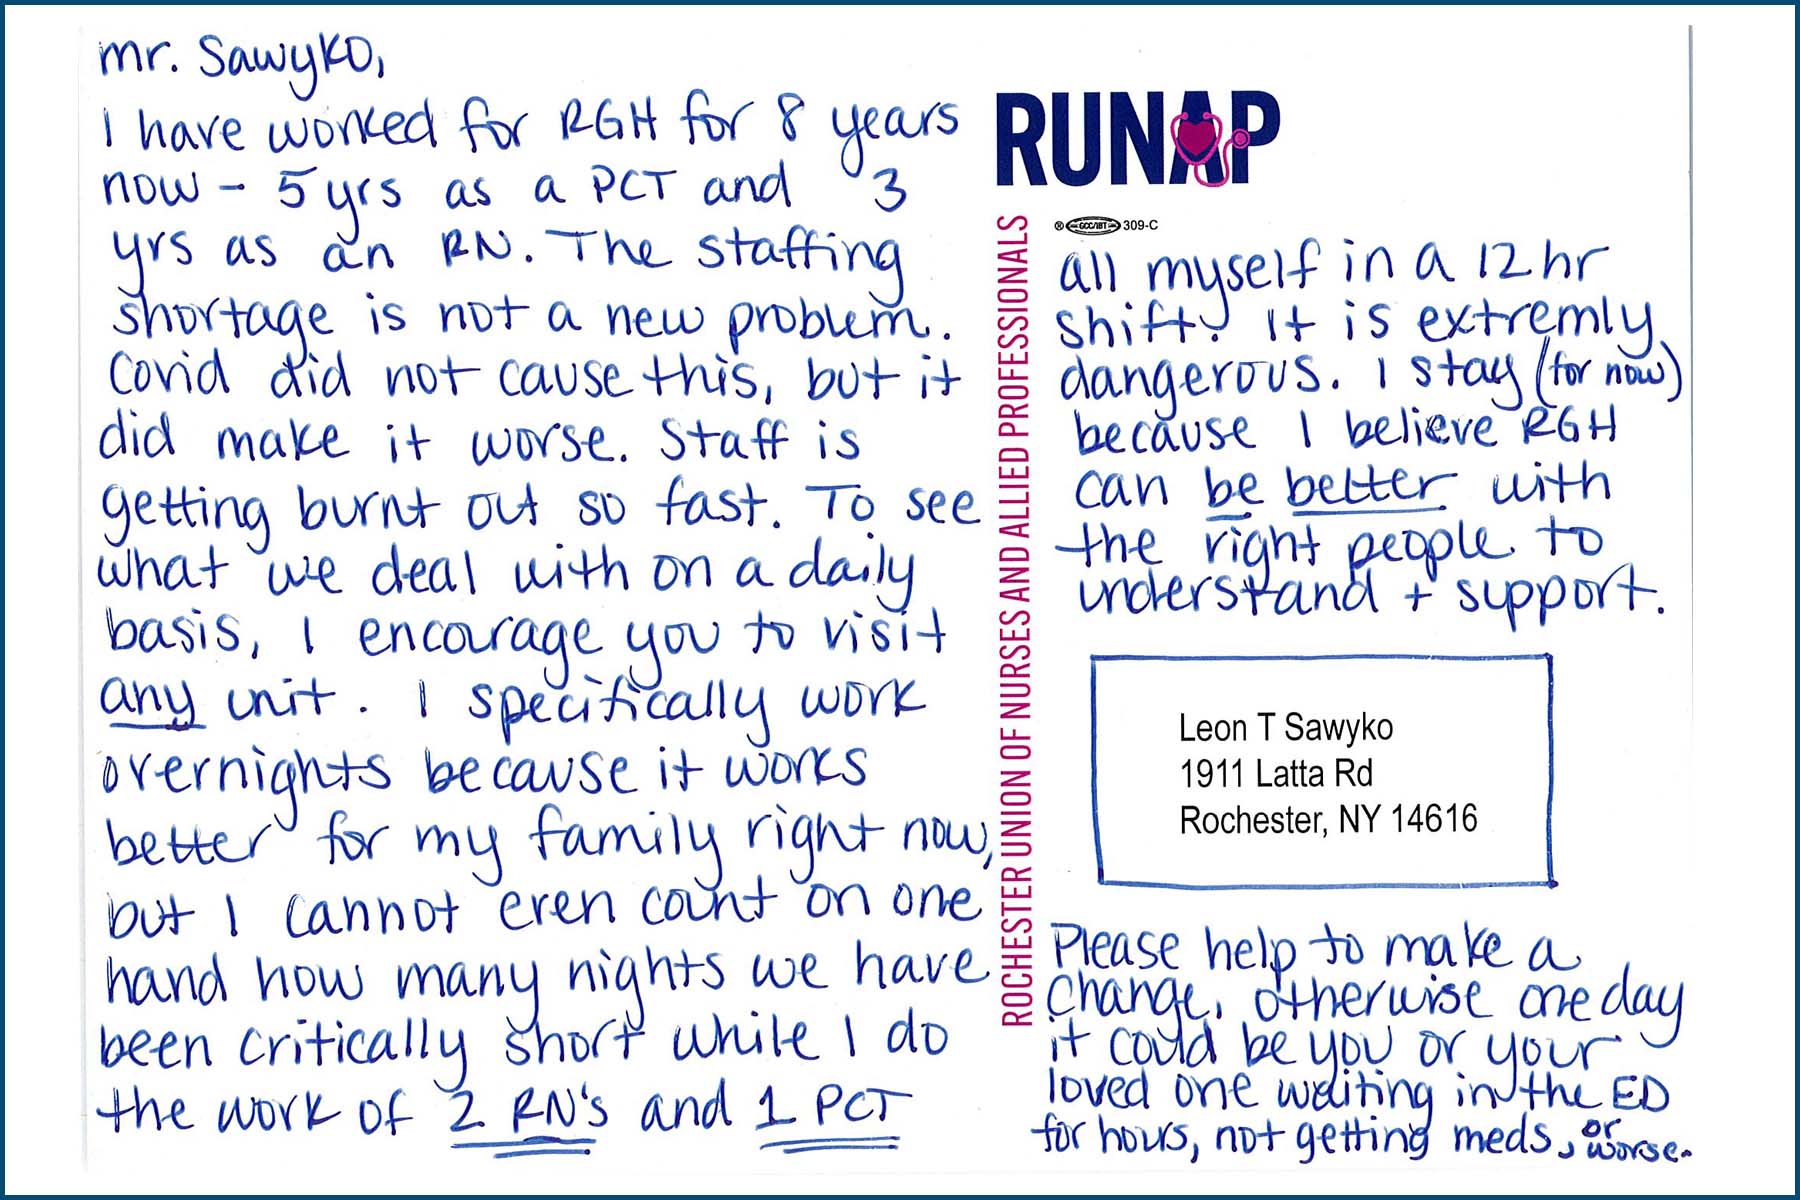 mr. Sawyko,
I have worked for RGH for 8 years
now - 5 yrs as a PCT and 3
yrs as an RN. The staffing
shortage is not a new problem.
Covid did not cause this, but it
did make it worse. Staff is
getting burnt out so fast. To see
what we deal with on a daily
basis, I encourage you to visit
any unit. I specifically work
overnights because it works
better for my family right now,
but I cannot even count on one
hand how many nights we have
been critically short while I do
the work of 2 RN's and 1 PCT
RUNAP
ROCHESTER UNION OF NURSES AND ALLIED PROFESSIONALS
® GCC/IBT 309-C
all myself in a 12 hr
shift. It is extremly
dangerous. I stay (for now)
because I believe RGH
can be better with
the right people to
understand + support.
Leon T Sawyko
1911 Latta Rd
Rochester, NY 14616
Please help to make a
change, otherwise one day
it could be you or your
loved one waiting in the ED
for hours, not getting meds, or
worse.